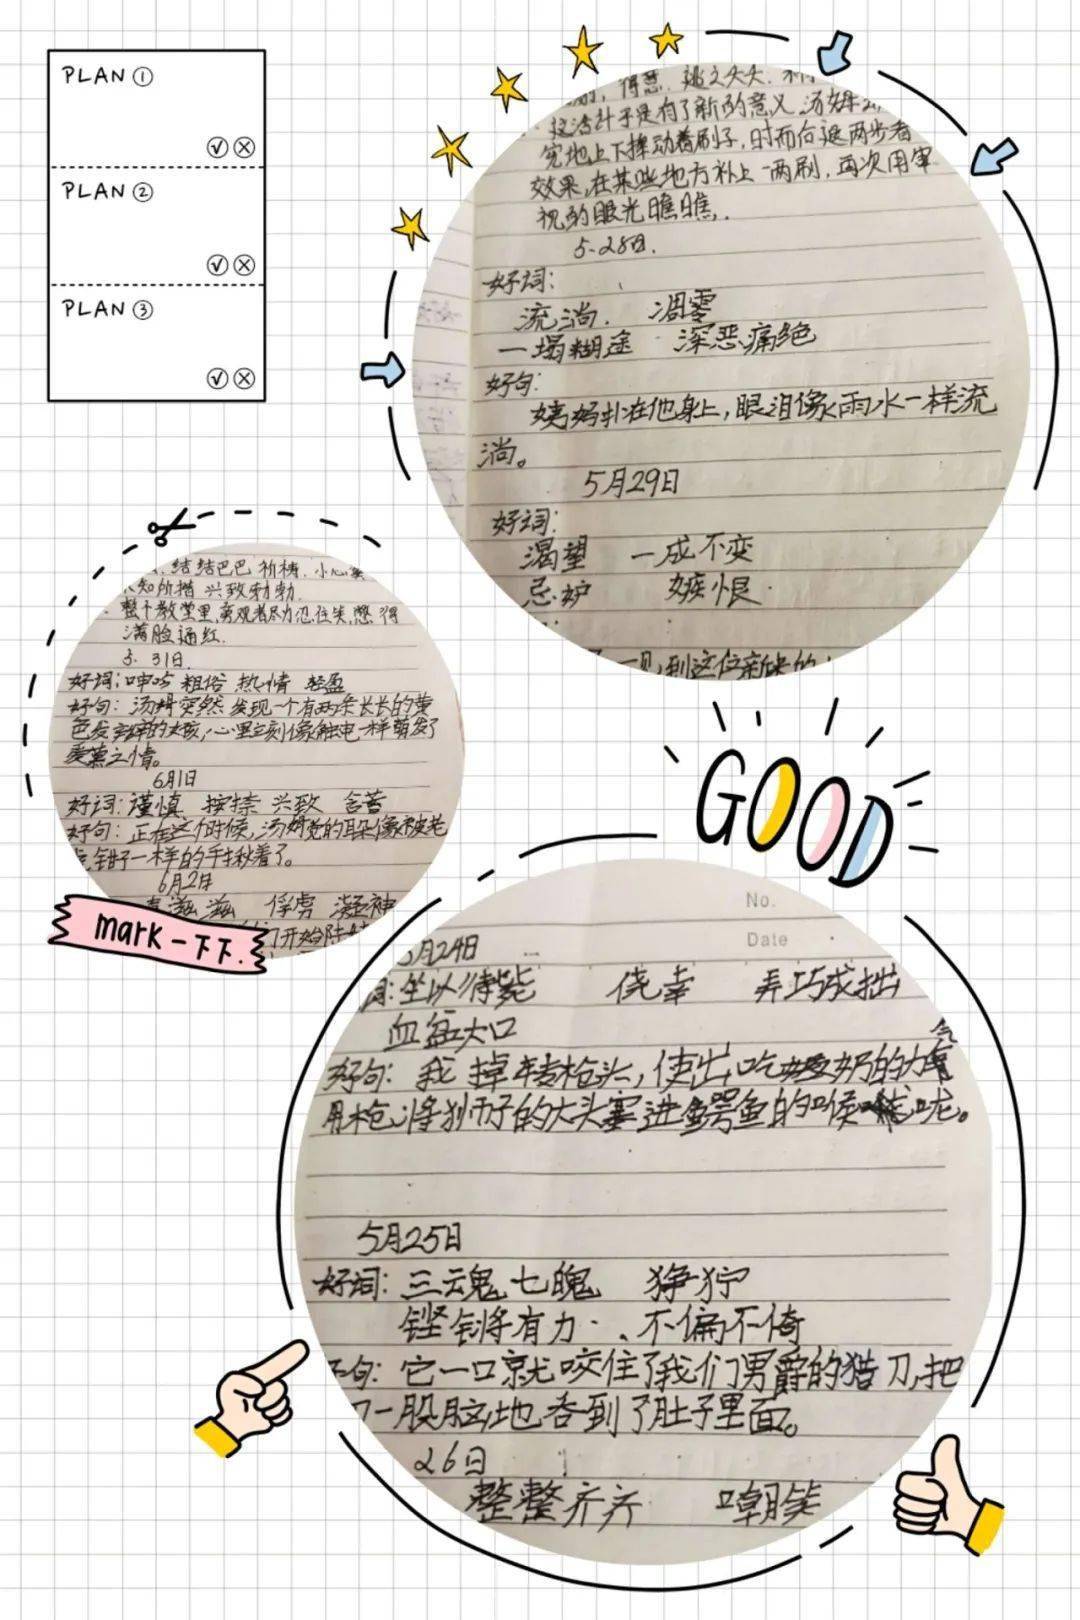 PLAN ①
PLAN ②
PLAN ③
得意. 逃之夭夭.
这活计于是有了新的意义.汤姆
究地上下挥动着刷子,时而后退两步看
效果,在某些地方补上一两刷,再次用审
视的眼光瞧瞧.
5.28日.
好词:
流淌. 凋零
一塌糊途 深恶痛绝
好句:
姨妈扑在他身上,眼泪像雨水一样流
淌。
5月29日
好词:
渴望 一成不变
忌妒 嫉恨.
一见到这位新来的
结结巴巴 祈祷. 小心翼
知所措 兴致勃勃.
整个教堂里,旁观者尽力忍住笑,憋得
满脸通红.
5. 31日.
好词:呻吟 粗俗 热情 轻盈
好句:汤姆突然发现一个有两条长长的黄
色发辫的女孩,心里立刻像触电一样萌发了
爱慕之情。
6月1日
好词:谨慎 按捺 兴致 含苦
好句:正在这个时候,汤姆觉的耳朵像被老
钳子一样的手揪着了。
6月2日
喜滋滋 俘虏 凝神
们开始
mark一下下.
GOOD
No.
Date
5月24日
词:坐以待毙 侥幸 弄巧成拙
血盆大口
好句:我掉转枪头,使出吃奶的力气
用枪将狮子的大头塞进鳄鱼的喉咙。
5月25日
好词:三魂七魄 狰狞
铿锵有力. 不偏不倚
好句:它一口就咬住了我们男爵的猎刀,把
刀一股脑地吞到了肚子里面。
26日
整整齐齐 嘲笑